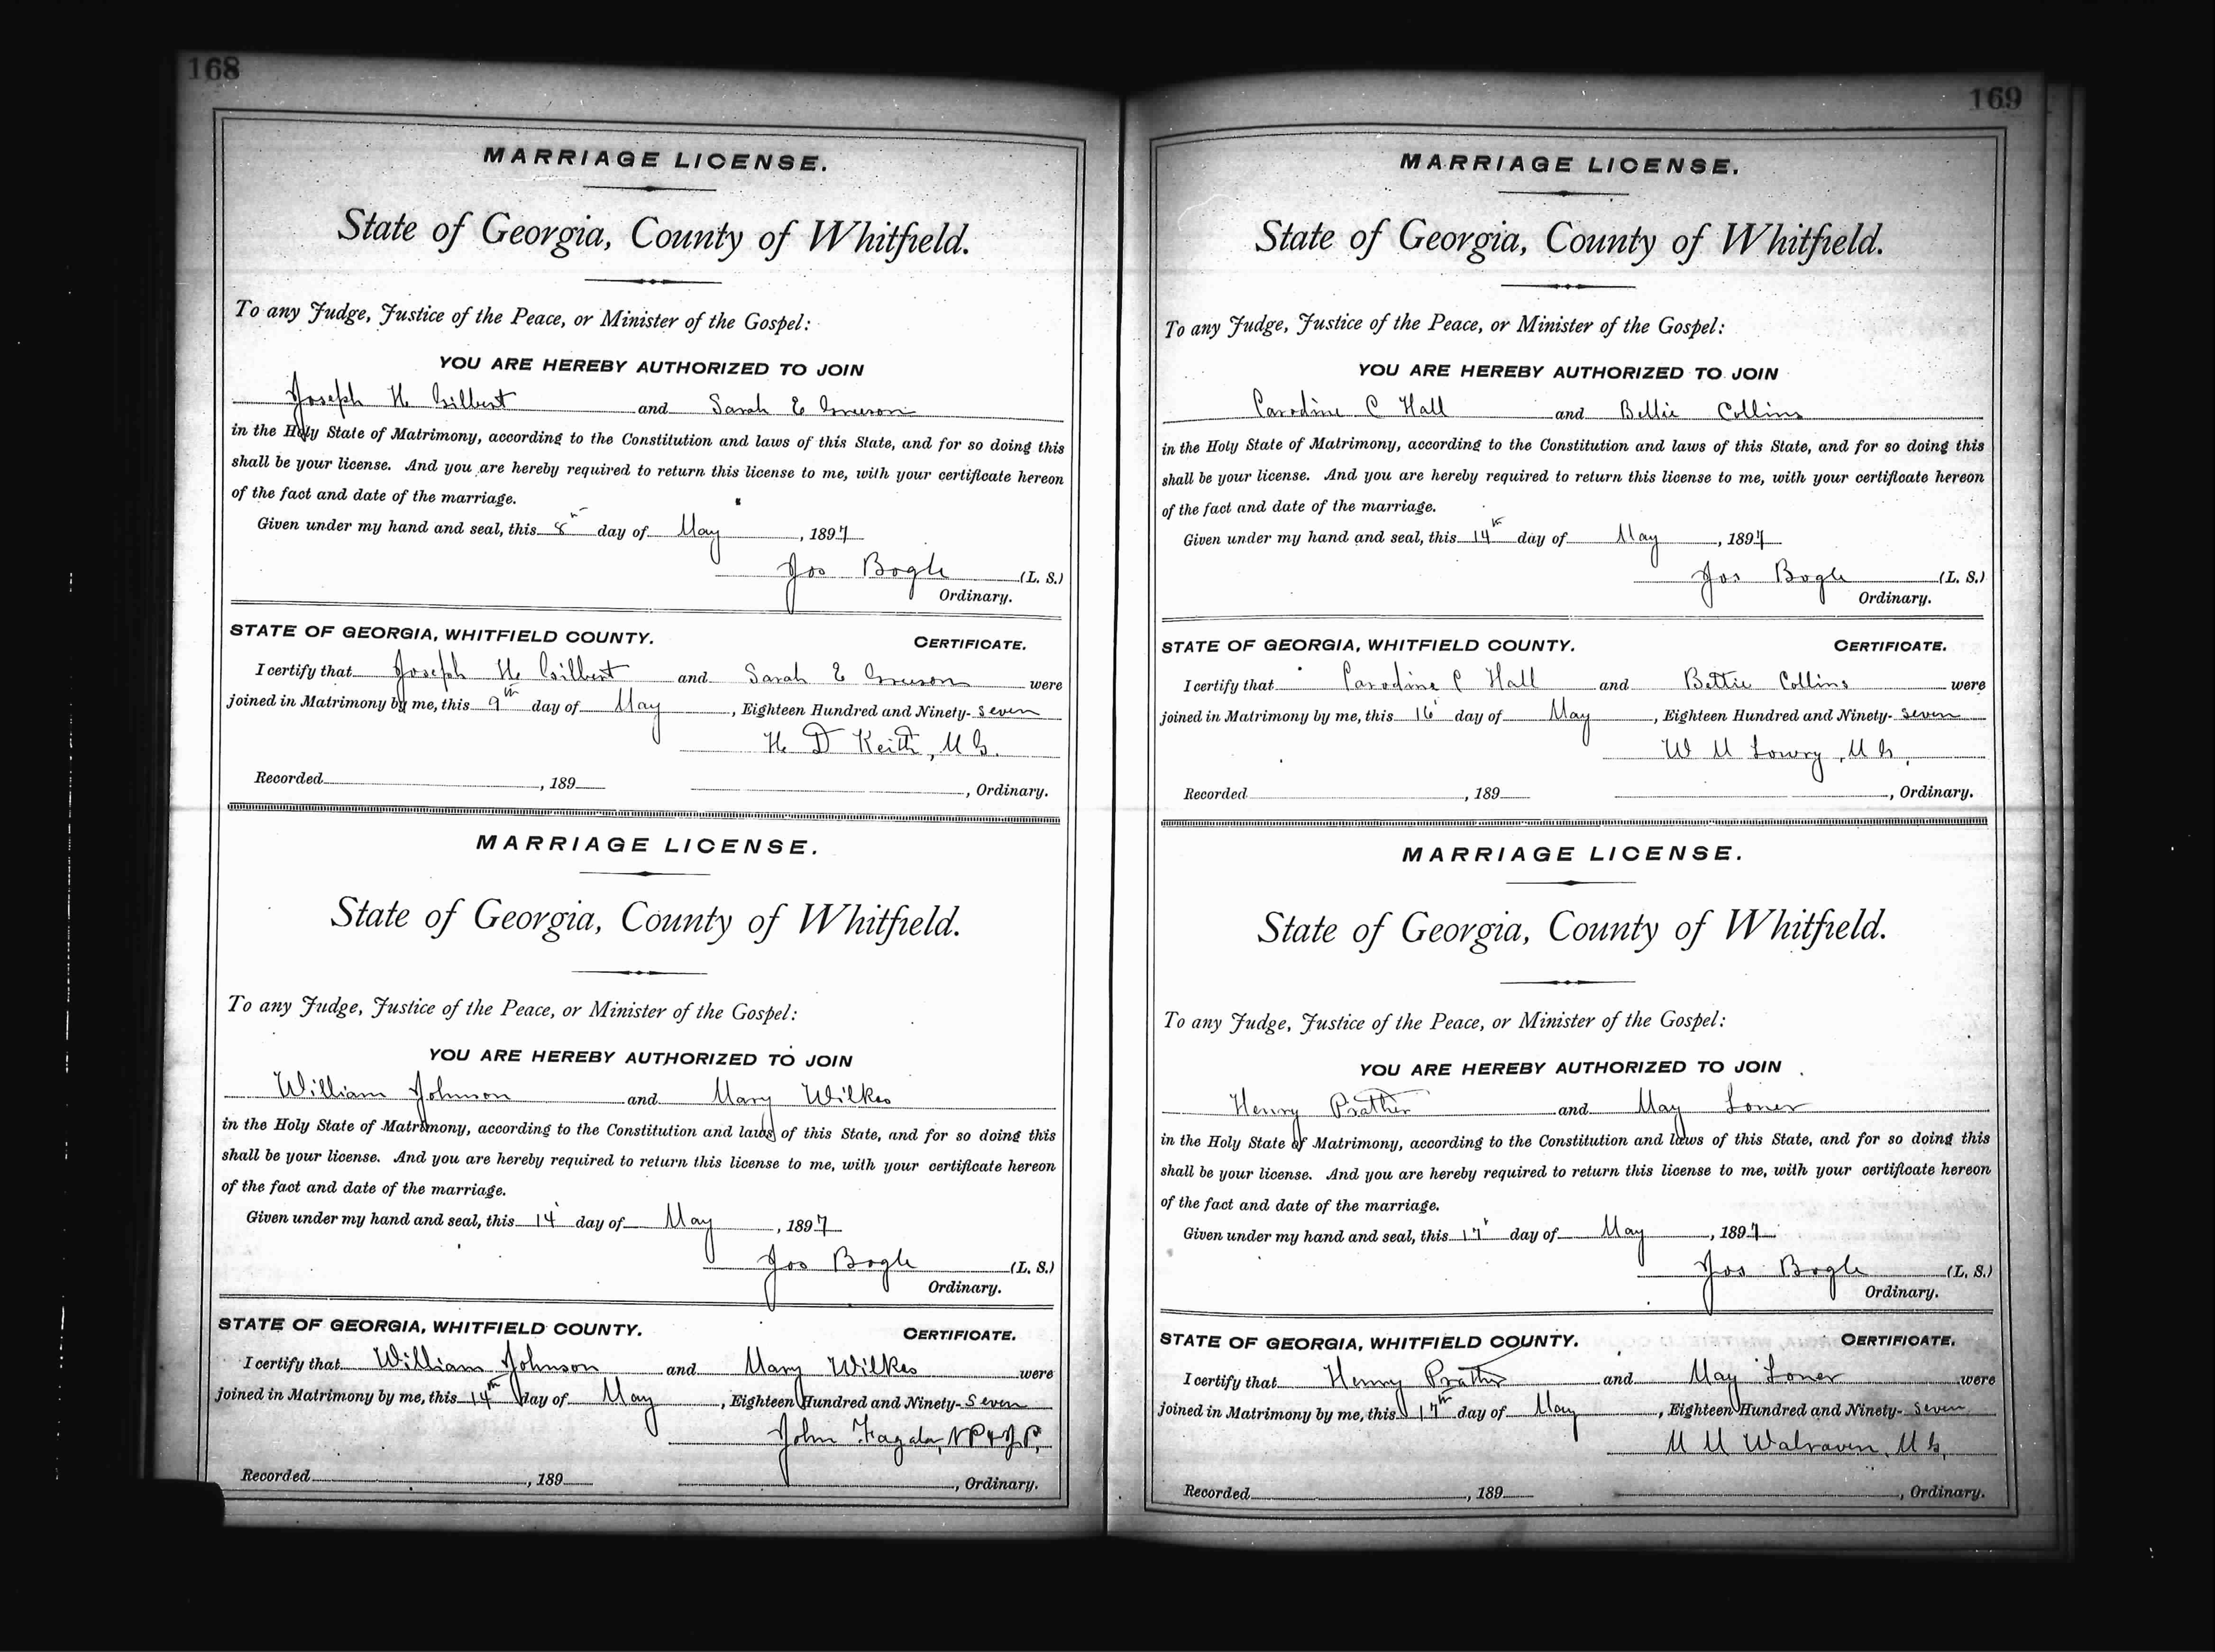 168
MARRIAGE LICENSE.
State of Georgia, County of Whitfield.
To any Judge, Justice of the Peace, or Minister of the Gospel:
YOU ARE HEREBY AUTHORIZED TO JOIN
Joseph H Gilbert and Sarah E
in the Holy State of Matrimony, according to the Constitution and laws of this State, and for so doing this
shall be your license. And you are hereby required to return this license to me, with your certificate hereon
of the fact and date of the marriage.
Given under my hand and seal, this 8th day of May, 1897
Jos Bogle (L. S.)
Ordinary.
STATE OF GEORGIA, WHITFIELD COUNTY. CERTIFICATE.
I certify that Joseph H Gilbert and Sarah E were
joined in Matrimony by me, this 9th day of May, Eighteen Hundred and Ninety-Seven
H D Keith, M G.
Recorded, 189 , Ordinary.
MARRIAGE LICENSE.
State of Georgia, County of Whitfield.
To any Judge, Justice of the Peace, or Minister of the Gospel:
YOU ARE HEREBY AUTHORIZED TO JOIN
William Johnson and Mary Wilkes
in the Holy State of Matrimony, according to the Constitution and laws of this State, and for so doing this
shall be your license. And you are hereby required to return this license to me, with your certificate hereon
of the fact and date of the marriage.
Given under my hand and seal, this 14 day of May, 1897
Jos Bogle (L. S.)
Ordinary.
STATE OF GEORGIA, WHITFIELD COUNTY. CERTIFICATE.
I certify that William Johnson and Mary Wilkes were
joined in Matrimony by me, this 14th day of May, Eighteen Hundred and Ninety-Seven
John NP & JP.
Recorded, 189 , Ordinary.
169
MARRIAGE LICENSE.
State of Georgia, County of Whitfield.
To any Judge, Justice of the Peace, or Minister of the Gospel:
YOU ARE HEREBY AUTHORIZED TO JOIN
C Hall and Bettie Collins
in the Holy State of Matrimony, according to the Constitution and laws of this State, and for so doing this
shall be your license. And you are hereby required to return this license to me, with your certificate hereon
of the fact and date of the marriage.
Given under my hand and seal, this 14th day of May, 1897
Jos Bogle (L. S.)
Ordinary.
STATE OF GEORGIA, WHITFIELD COUNTY. CERTIFICATE.
I certify that C Hall and Bettie Collins were
joined in Matrimony by me, this 16 day of May, Eighteen Hundred and Ninety-Seven
W M Lowry, M G,
Recorded, 189 , Ordinary.
MARRIAGE LICENSE.
State of Georgia, County of Whitfield.
To any Judge, Justice of the Peace, or Minister of the Gospel:
YOU ARE HEREBY AUTHORIZED TO JOIN
Henry Prather and May Loner
in the Holy State of Matrimony, according to the Constitution and laws of this State, and for so doing this
shall be your license. And you are hereby required to return this license to me, with your certificate hereon
of the fact and date of the marriage.
Given under my hand and seal, this 17 day of May, 1897
Jos Bogle (L. S.)
Ordinary.
STATE OF GEORGIA, WHITFIELD COUNTY. CERTIFICATE.
I certify that Henry Prather and May Loner were
joined in Matrimony by me, this 17th day of May, Eighteen Hundred and Ninety-Seven
M M Walraven, M G,
Recorded, 189 , Ordinary.